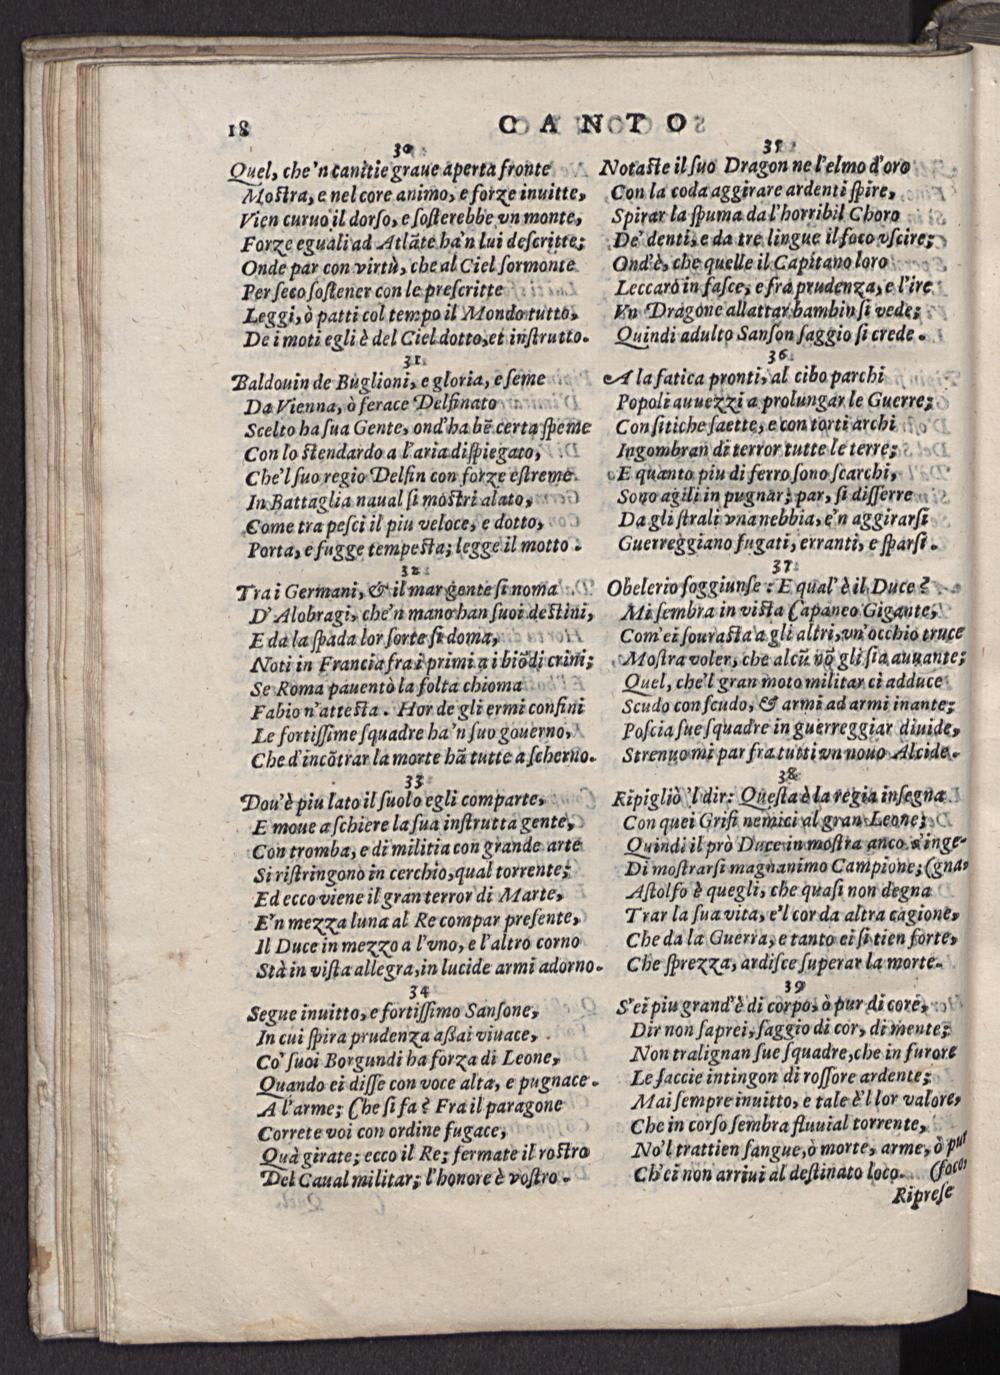 18
CANTO
30
Quel, che'n canitie graue aperta fronte
Moſtra, e nel core animo, e forze inuitte,
Vien curuo il dorſo, e ſoſterebbe vn monte,
Forze eguali ad Atlãte ha'n lui deſcritte;
Onde par con virtù, che al Ciel ſormonte
Per ſeco ſoſtener con le preſcritte
Leggi, ò patti col tempo il Mondo tutto,
De i moti egli è del Ciel dotto, et inſtrutto.
31
Baldouin de Buglioni, e gloria, e ſeme
Da Vienna, ò ferace Delfinato
Scelto ha ſua Gente, ond'ha bẽ certa ſpeme
Con lo ſtendardo a l'aria diſpiegato,
Che'l ſuo regio Delfin con forze eſtreme
In Battaglia naual ſi moſtri alato,
Come tra peſci il piu veloce, e dotto,
Porta, e fugge tempeſta; legge il motto.
32
Tra i Germani, & il mar gente ſi noma
D'Alobragi, che'n mano han ſuoi deſtini,
E da la ſpada lor ſorte ſi doma,
Noti in Francia fra i primi a i biõdi crini;
Se Roma pauentò la folta chioma
Fabio n'atteſta. Hor de gli ermi confini
Le fortiſſime ſquadre ha'n ſuo gouerno,
Che d'incõtrar la morte hã tutte a ſcherno.
33
Dou'è piu lato il ſuolo egli comparte,
E moue a ſchiere la ſua inſtrutta gente,
Con tromba, e di militia con grande arte
Si riſtringono in cerchio, qual torrente;
Ed ecco viene il gran terror di Marte,
E'n mezza luna al Re compar preſente,
Il Duce in mezzo a l'vno, e l'altro corno
Stà in viſta allegra, in lucide armi adorno.
34
Segue inuitto, e fortiſſimo Sanſone,
In cui ſpira prudenza aſſai viuace,
Co' ſuoi Borgundi ha forza di Leone,
Quando ei diſſe con voce alta, e pugnace.
A l'arme; Che ſi fa? Fra il paragone
Correte voi con ordine fugace,
Quà girate; ecco il Re; fermate il roſtro
Del Caual militar; l'honore è voſtro.
35
Notaſte il ſuo Dragon ne l'elmo d'oro
Con la coda aggirare ardenti ſpire,
Spirar la ſpuma da l'horribil Choro
De' denti, e da tre lingue il foco vſcire;
Ond'è, che quelle il Capitano loro
Leccarò in faſce, e fra prudenza, e l'ire
Vn Dragone allattar bambin ſi vede;
Quindi adulto Sanſon ſaggio ſi crede.
36
A la fatica pronti, al cibo parchi
Popoli auuezzi a prolungar le Guerre;
Con ſitiche ſaette, e con torti archi
Ingombran di terror tutte le terre;
E quanto piu di ferro ſono ſcarchi,
Sono agili in pugnar; par, ſi diſſerre
Da gli ſtrali vna nebbia, e'n aggirarſi
Guerreggiano fugati, erranti, e ſparſi.
37
Obelerio ſoggiunſe: E qual'è il Duce?
Mi ſembra in viſta Capaneo Gigante,
Com'ei ſouraſta a gli altri, vn'occhio truce
Moſtra voler, che alcũ nõ gli ſia auuante;
Quel, che'l gran moto militar ci adduce
Scudo con ſcudo, & armi ad armi inante;
Poſcia ſue ſquadre in guerreggiar diuide,
Strenuo mi par fra tutti vn nouo Alcide.
38
Ripigliò 'l dir: Queſta è la regia inſegna
Con quei Grifi nemici al gran Leone;
Quindi il prò Duce in moſtra anco s'inge-
Di moſtrarſi magnanimo Campione; (gna,
Aſtolfo è quegli, che quaſi non degna
Trar la ſua vita, e'l cor da altra cagione,
Che da la Guerra, e tanto ei ſi tien forte,
Che ſprezza, ardiſce ſuperar la morte.
39
S'ei piu grand'è di corpo, ò pur di core,
Dir non ſaprei, ſaggio di cor, di mente;
Non tralignan ſue ſquadre, che in furore
Le faccie intingon di roſſore ardente;
Mai ſempre inuitto, e tale è'l lor valore,
Che in corſo ſembra fluuial torrente,
No'l trattien ſangue, ò morte, arme, ò pur
Ch'ei non arriui al deſtinato loco. (foco,
Ripreſe